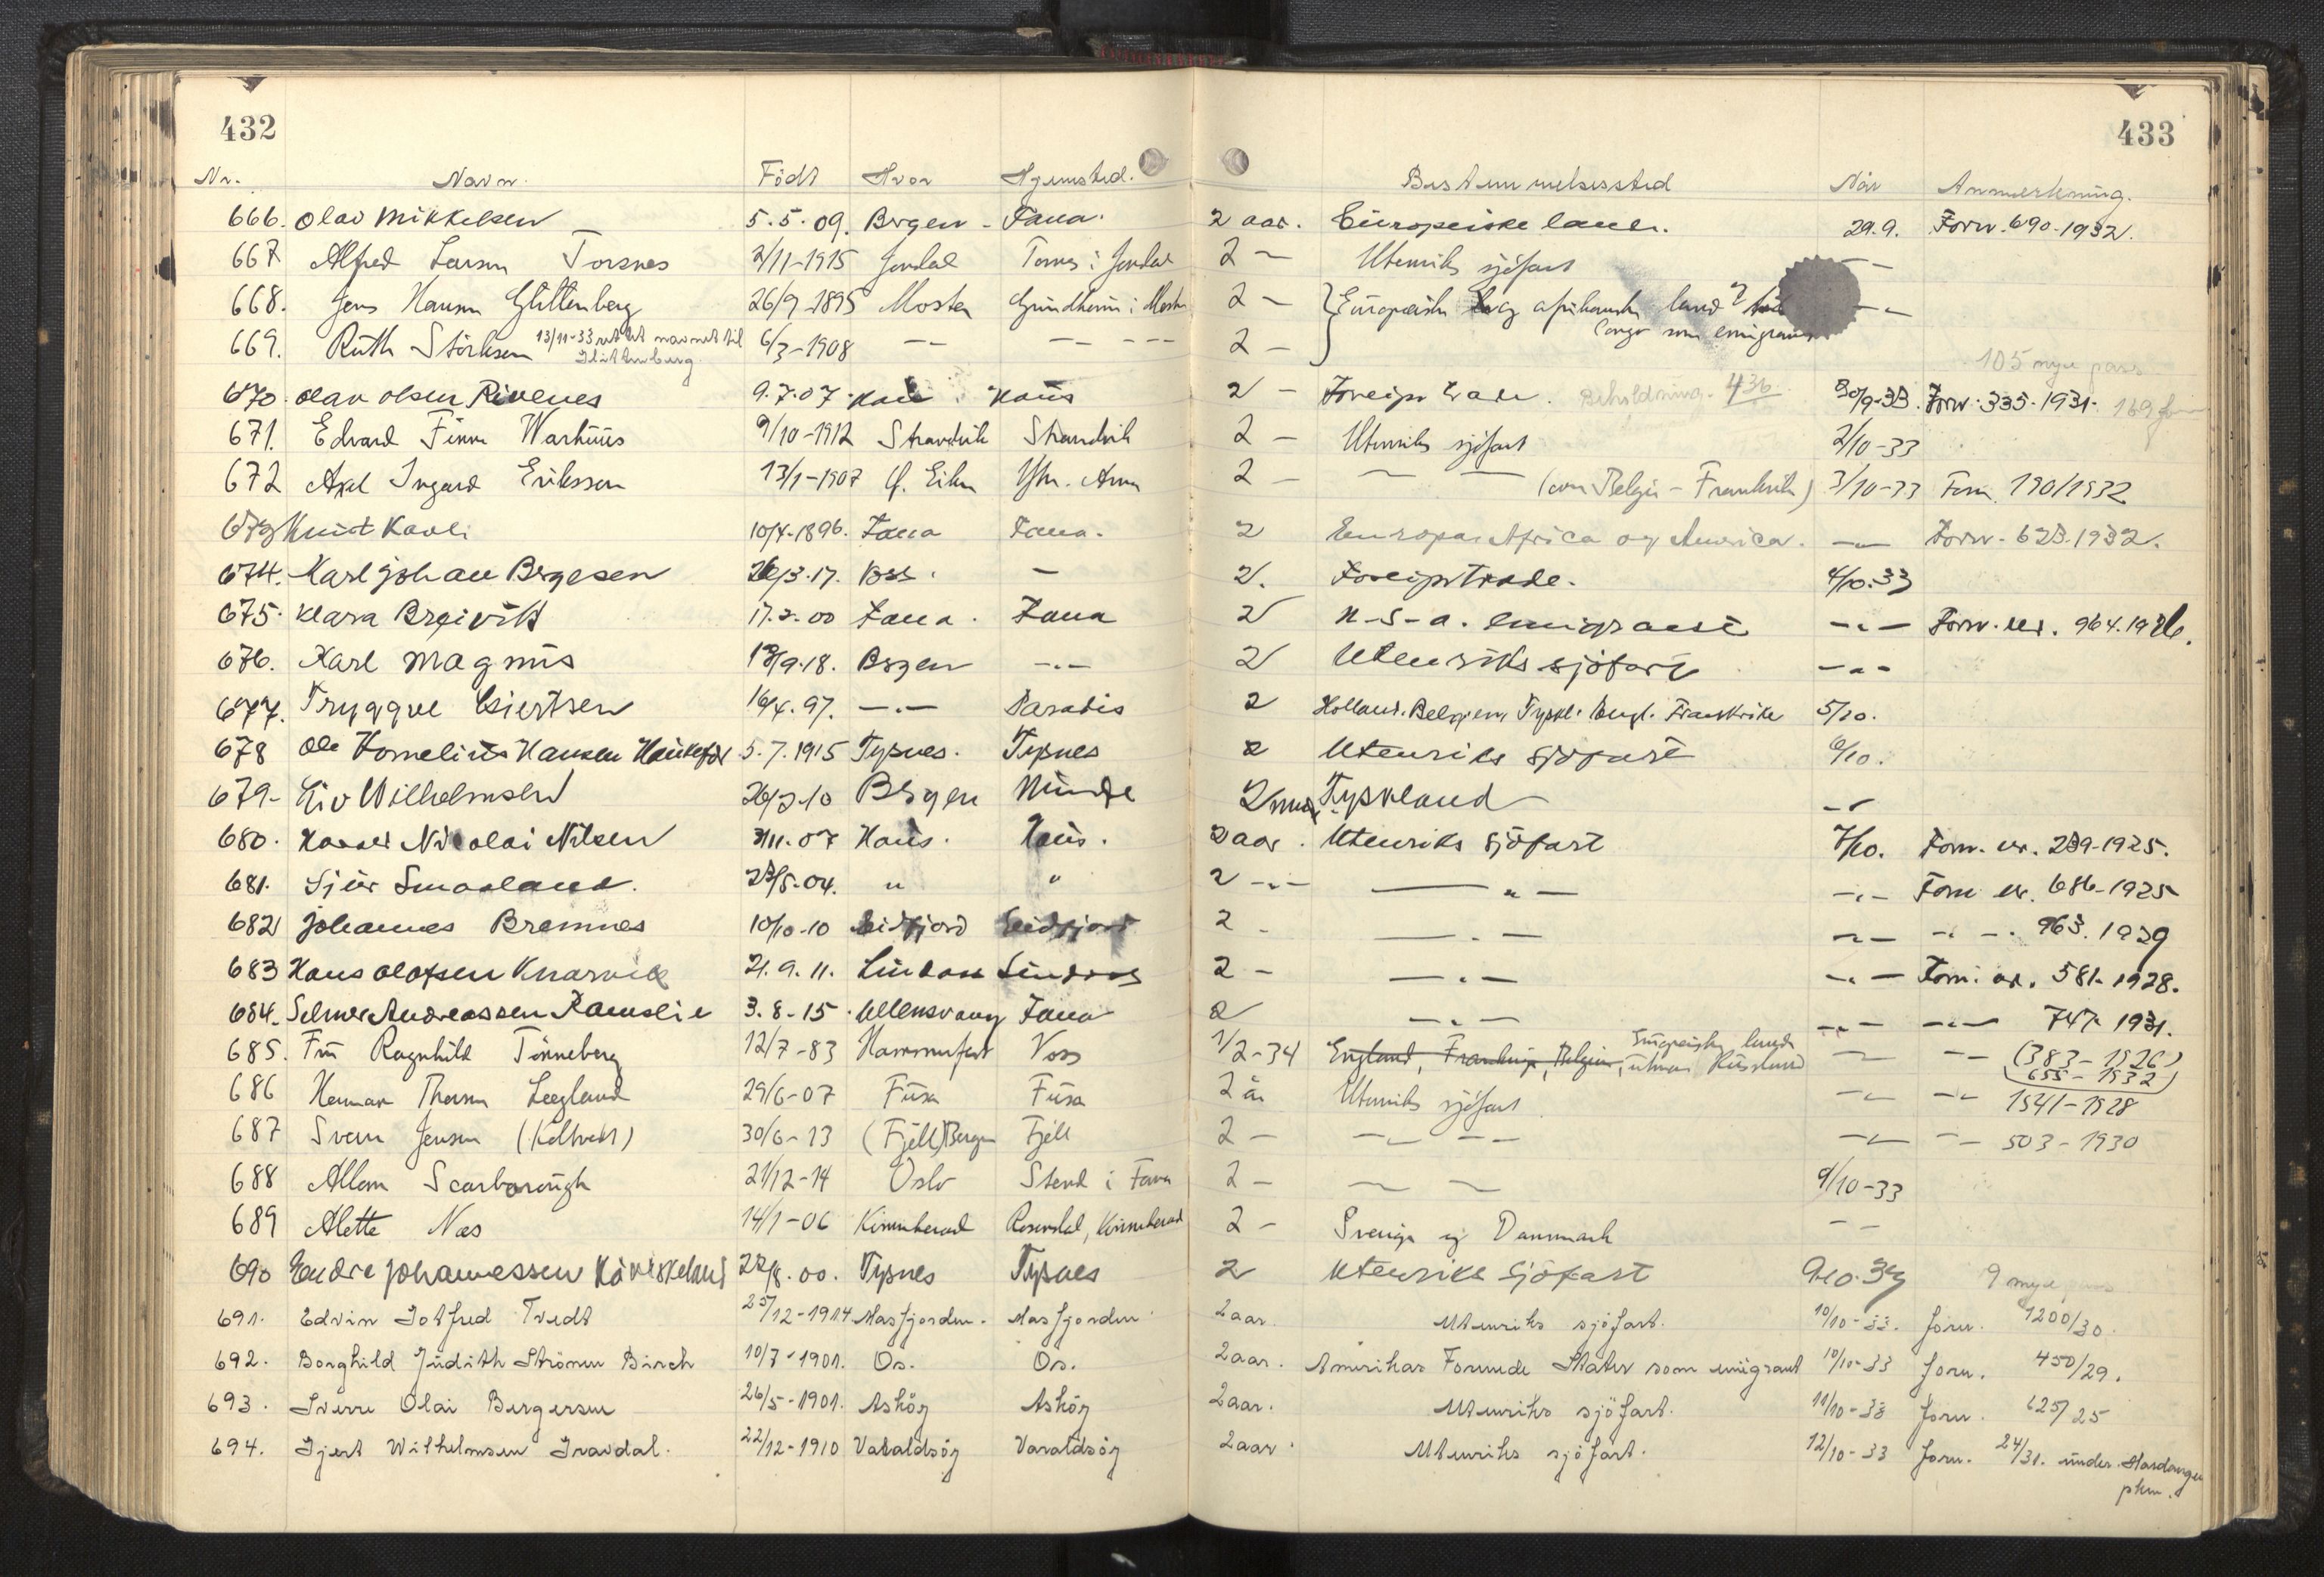 432
433
Nr. Navn. Födt Hvor Hjemsted. Bestemmelsessted Når Anmerkning.
666. Olav Mikkelsen 5.5.09. Bergen - Fana. 2 aar. Europeiske land. 29.9. Forn. 690-1932.
667 Alfred Larsen Torsnes 2/11-1915 Jondal Torsnes i Jondal 2 — Utenriks sjöfart — —
668. Jens Hansen Glittenberg 26/9-1895 Moster Grindheim i Moster 2 — Europeiske og afrikanske land — —
Congo som emigrant
669. Ruth Störksen 13/11-33 rettet navnet til 6/3-1908 — — — — — 2 —
Glittenberg
105 nye pass
670. Olav Olsen Rivenes 9.7.07. Haus. Haus 2 — Foreign trade. Beholdning. 436 30/9-33. Forn. 335-1931. 169
671. Edvard Finn Warhuus 9/10-1912 Strandvik Strandvik 2 — Utenriks sjöfart 2/10-33
672 Axel Ingard Eriksson 13/1-1907 2 — — — (over Belgia - Frankrik) 3/10-33 Forn. 190/1932
673 Knut Kavli 10/4-1896. Fana Fana. 2 Europa Africa og America. — Forn. 623-1932.
674. Karl Johan Bergesen 26/3.17. Voss. — 2. Foreign trade. 4/10.33
675. Klara Breivik 17.2.00 Fana. Fana 2 U-S-A. emigrant —„— Forn. nr. 964.1926.
676. Karl Magnus 13/9.18. Bergen —„— 2 Utenriks sjöfart —„—
677. Tryggve Giertsen 16/4.97. —„— Paradis 2 Holland. Belgien, Tyskl. Engl. Frankrike 5/10.
678 Ole Kornelius Hansen 5.7.1915 Tysnes. Tysnes 2 Utenriks sjöfart 6/10.
679- Liv Wilhelmsen 26/2.10 Bergen Minde 2 mnd. Tyskland —„
680. Nicolai Nilsen 3/11.07 Haus. Haus. 2 aar. Utenriks sjöfart 7/10. Forn. nr. 239-1925.
681. Sjur Smaaland. 23/5-04. „ „ 2 —„— —„— —„— Forn nr. 686-1925
682 Johannes Bremnes 10/10-10 Eidfjord Eidfjord 2 - —„— —„— —„— 963. 1929
683 Hans Olafsen Knarvik 21.9.11. Lindaas Lindaas 2 — —„— —„— Forn. nr. 581-1928.
684. Selmer Andreassen Ramslie 3.8-15. Ullensvang Fana 2 —„— —„— —„— 747-1931.
Europeiske lande
685. Fru Ragnhild Tönneberg 12/7-83 Hammerfest Voss 1/2-34 England, Frankrige, Belgien, utenom Russland — — (383-1926)
655-1932)
686 Herman Thorsen Leegland 29/6-07 Fusa Fusa 2 år Utenriks sjöfart. —„— —„— 1541-1928
687 Svein Jensen 30/6-13 (Fjell) Bergen Fjell 2 — —„— — — —„— — — 503-1930
688 Allan Scarborough 21/12-14 Oslo Stend i Fana 2 — — — 9/10-33
689 Alette Næs 14/1-06 Kvinnherad Rosendal, Kvinnherad 2 — Sverige og Danmark — —
690 Endre Johannessen 22/8.00. Tysnes Tysnes 2 Utenriks sjöfart 9.10.33 9 nye pass
691. Edvin Gotfred Tvedt 25/12-1914 Masfjorden. Masfjorden. 2 aar. Utenriks sjöfart. 10/10-33. Forn. 1200/30.
692. Borghild Judith Strömn Birch 10/7-1901. Os. Os. 2 aar. Amerikas Forenede Stater som emigrant 10/10-33 Forn. 450/29.
693. Sverre Olai Bergersen 26/5-1901. Asköy Asköy 2 aar. Utenriks sjöfart. 11/10-33 Forn. 625/25
694. Gjert Wilhelmsen Gravdal. 22/12-1910 Varaldsöy Varaldsöy 2 aar. Utenriks sjöfart. 12/10-33 Forn. 24/31. under Hardanger
pkm.